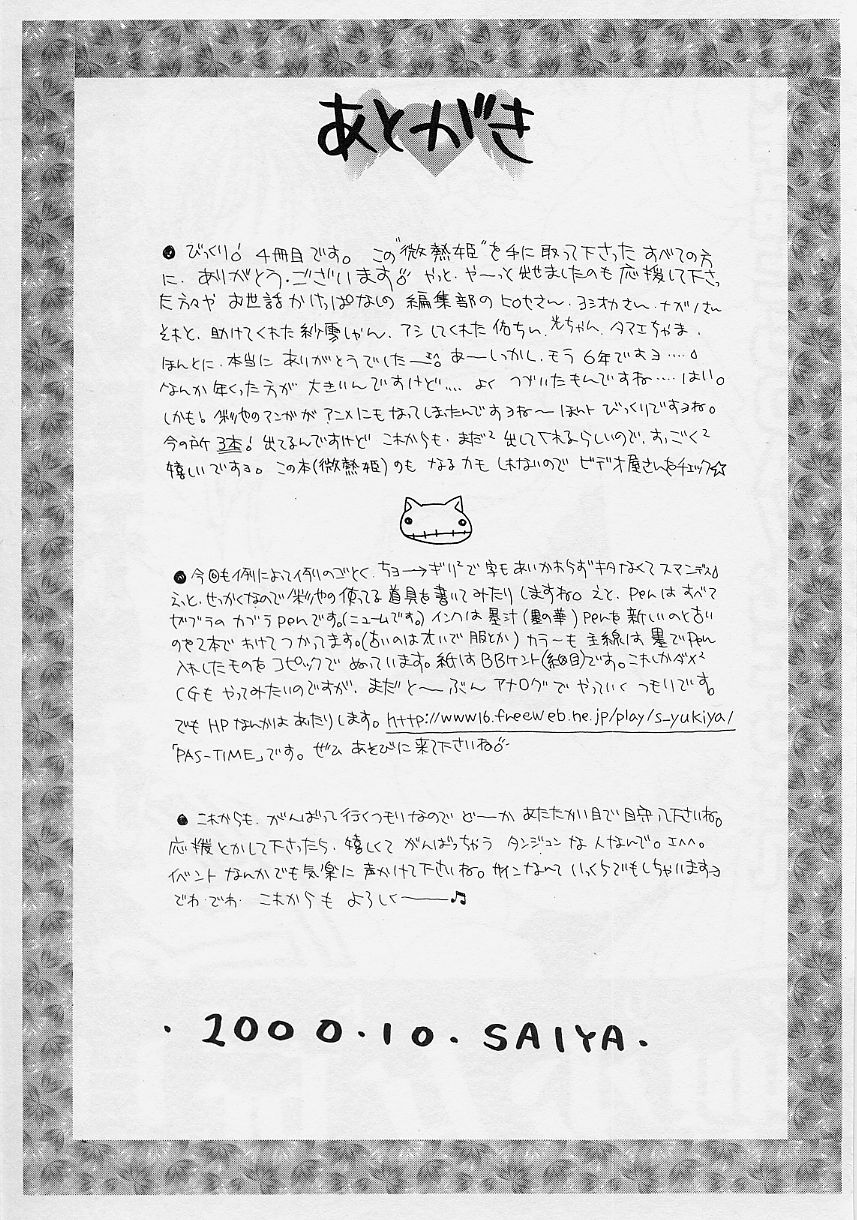 あとがき
● びっくり! 4冊目です。 この"微熱姫"を手に取って下さった すべての方
に、ありがとう・ございます!! やっと、や〜っと 出せましたのも 応援して下さっ
た方々や お世話かけっぱなしの 編集部のヒロセさん、ヨシオカさん、ナガノさん
それと、助けてくれた 紗雪しゃん、アシしてくれた 佑ちぃ、光ちゃん、タマエちゃま、
ほんとに、本当に ありがとうでした── あーしっかし、もう 6年ですヨ····!
なんか 年くった方が 大きいんですけど···· よく つづいたもんですね···· はい。
しかも! 彩也のマンガが アニメにもなってしまったんですヨね〜 ほんト びっくりですヨね。
今の所 3本! 出てるんですけど これからも、まだ² 出して下れるらしいので、すっごく²
嬉しいですヨ。 この本(微熱姫)のも なるカモ しれないので ビデオ屋さんをチェック☆
● 今回も例によって例のごとく、ちョー→ギリ²で 字もあいかわらずキタなくて スマンデス!
えっと、せっかくなので 彩也の使ってる 道具を書いてみたりしますね。 えと、Penは すべて
ゼブラの カブラPenです。(ニュームです。) インクは 墨汁(墨の華) Penを 新しいのと古い
のやで2本で わけてつかってます。(古いのは オいで 服とか) カラーも 主線は 墨でPen
入れしたものを コピックで ぬっています。紙は BBケント(細目)です。これしかダメ²
CGも やってみたいのですが、まだ と〜ぶん アナログで やっていく つもりです。
でも HPなんかは あったりします。 http://www16.freeweb.ne.jp/play/s_yukiya/
「PAS-TIME」です。 ぜひ あそびに来て下さいね!
● これからも、がんばって行くつもりなので ど〜か あたたかい目で見守って下さいね。
応援とかして下さったら、嬉しくて がんばっちゃう タンジュンな 人なんで。エヘヘ。
イベントなんかでも気楽に 声かけて下さいね。サインなんて いっくらでもしちゃいますヨ
でわ・でわ、 これからも よろしく───♫
・2000・10・SAIYA・